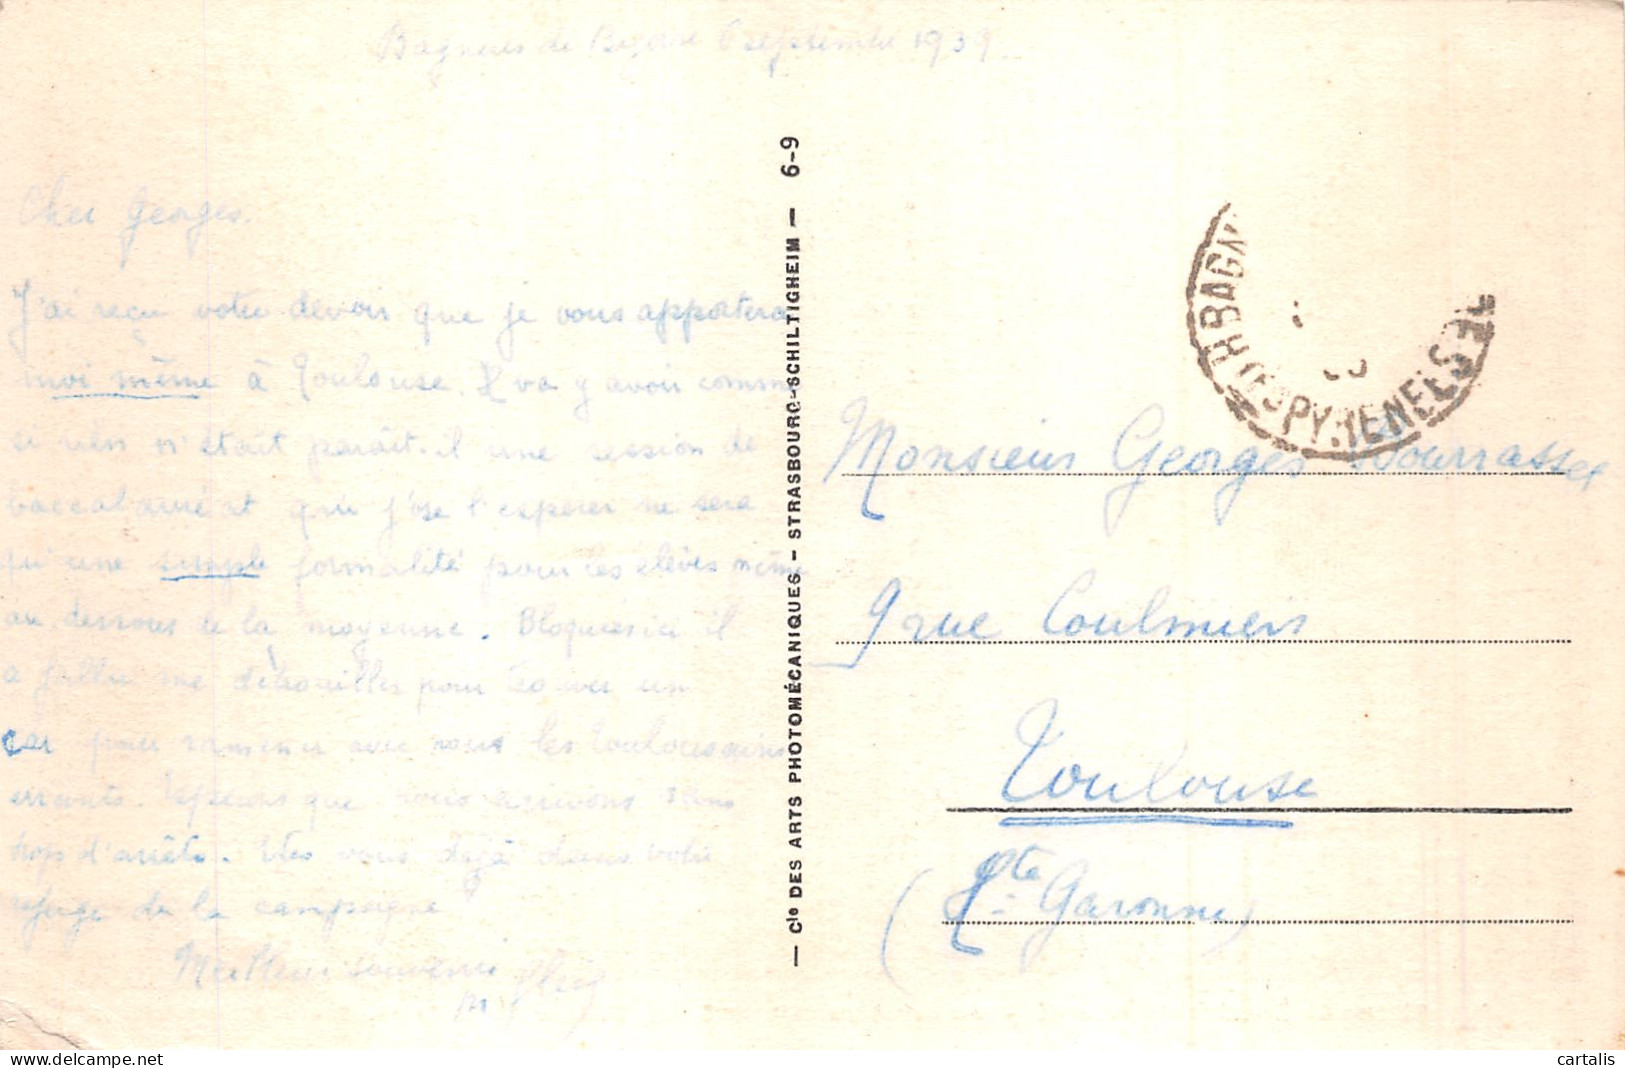 Bagnères de Bigorre 6 septembre 1939
Cher Georges.
J'ai reçu votre devoir que je vous apporterai
moi même à Toulouse. Il va y avoir comme
si rien n'était paraît-il une session de
baccalauréat qui j'ose l'espérer ne sera
qu'une simple formalité pour les élèves même
au dessous de la moyenne. Bloqués ici il
a fallu se débrouiller pour trouver un
car pour ramener avec nous les toulousains
errants. Espérons que nous arrivons sans
trop d'arrêts. Etes vous déjà dans votre
refuge de la campagne
Meilleur souvenir
— Cie DES ARTS PHOTOMÉCANIQUES - STRASBOURG-SCHILTIGHEIM — 6-9
H BAGN
(ES PYRENEES
Monsieur Georges Dourrasse
9 rue Coulmiers
Toulouse
(Hte Garonne)
cartalis